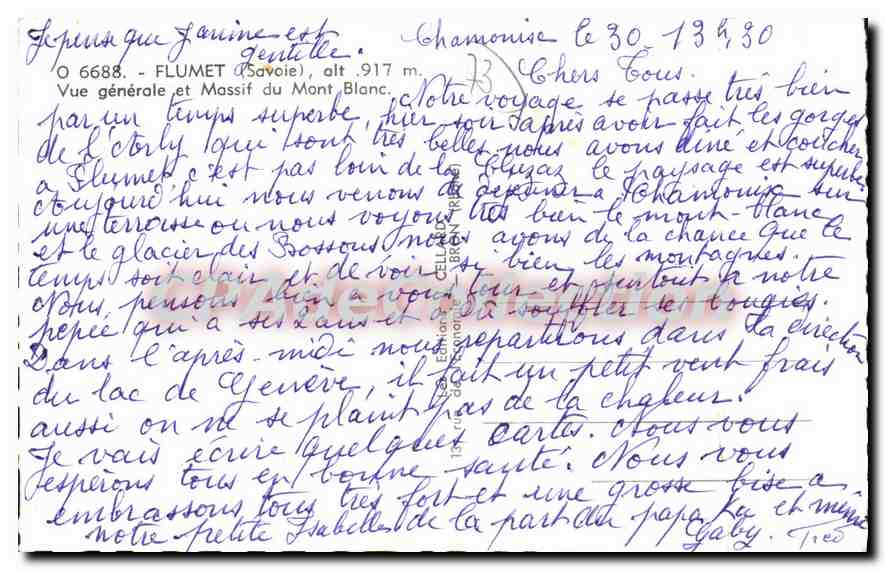 Je pense que Janine est
gentille.
Chamonix le 30 - 13h,30
O 6688. - FLUMET (Savoie), alt .917 m.
Vue générale et Massif du Mont Blanc.
73
Chers Tous.
Notre voyage se passe très bien
par un temps superbe, hier soir après avoir fait les gorges
de l'Arly qui sont très belles nous avons diné et coucher
a Flumet c'est pas loin de la Cluzaz le paysage est superbe
Aujourd'hui nous venons de dejeuner a Chamonix sur
une terrasse ou nous voyons très bien le mont-blanc
et le glacier des Bossons nous avons de la chance que le
temps soit clair et de voir si bien les montagnes.
Nous pensons bien a vous tous et surtout a notre
pepée qui a ses 2 ans et a dû souffler ses bougies.
Dans l'après-midi nous repartirons dans la direction
du lac de Genève, il fait un petit vent frais
aussi on ne se plaint pas de la chaleur.
Je vais écrire quelques cartes. Nous vous
espérons tous en bonne santé. Nous vous
embrassons tous très fort et une grosse bise a
notre petite Isabelle de la part du papa et
Gaby.
Les Editions J. CELLARD
13, rue de l'Economie - BRON (Rhône)